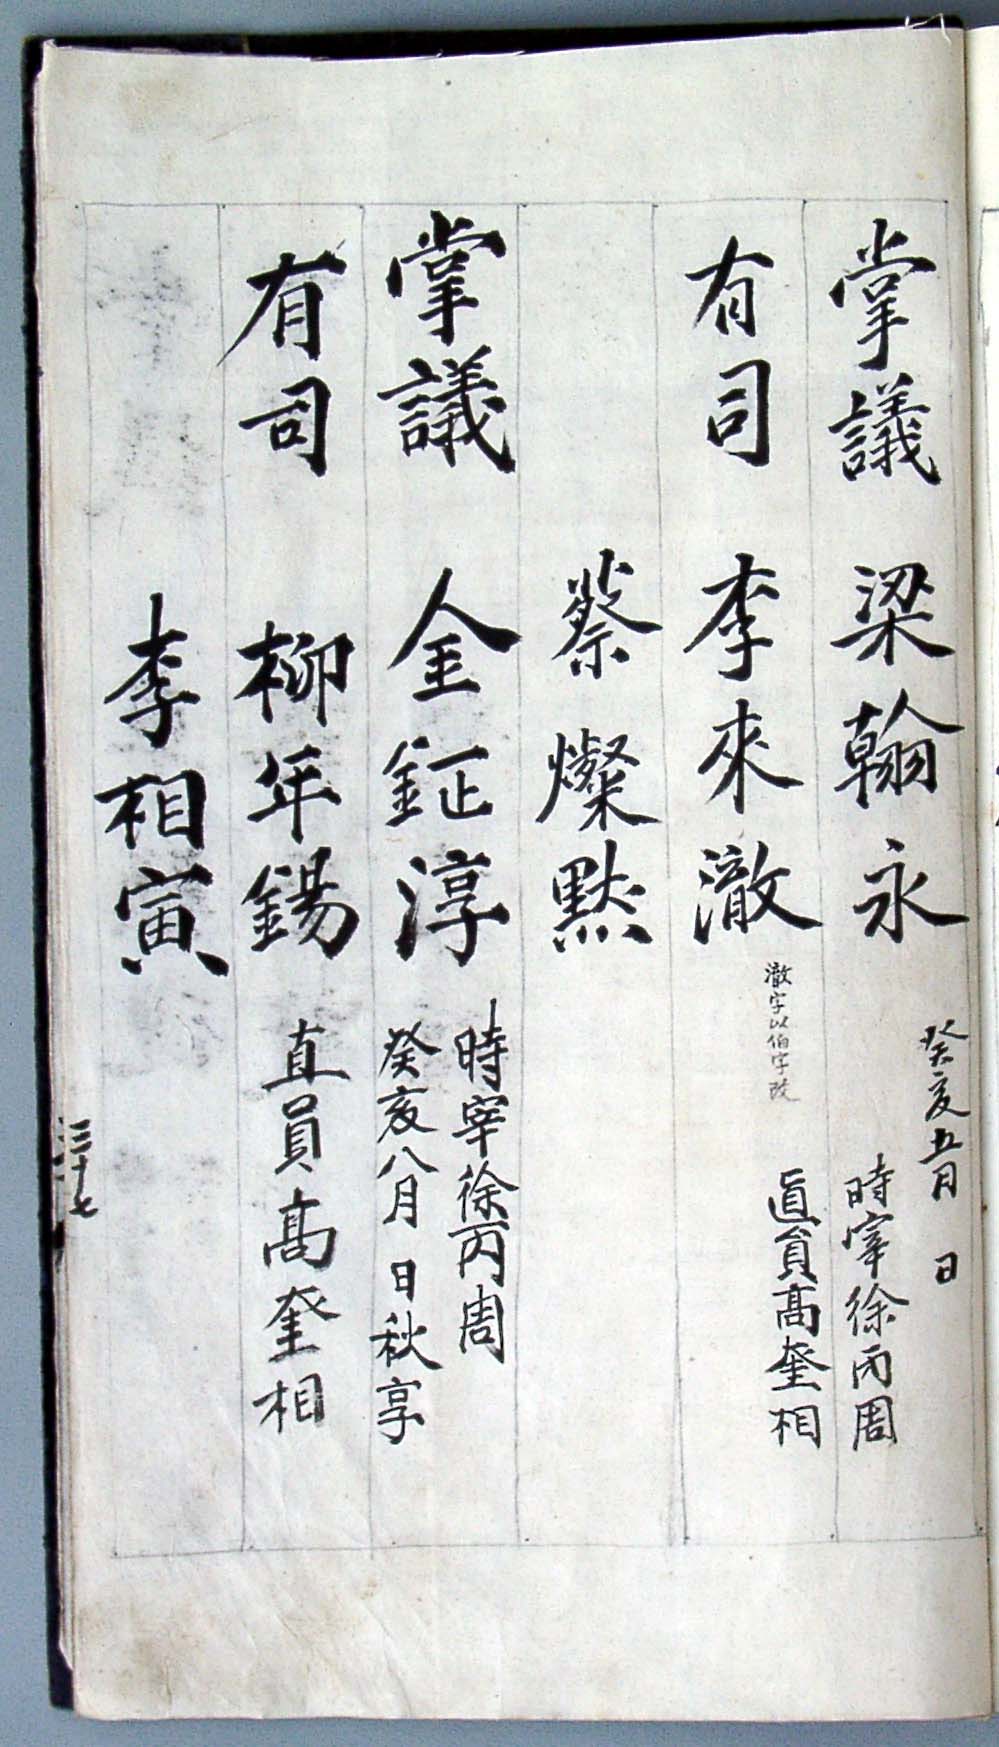 掌議 梁翰永 癸亥五月 日
時宰徐丙周
有司 李來澈 澈字以伯字改
直員高奎相
蔡燦默
掌議 金鉦淳 時宰徐丙周
癸亥八月 日秋享
有司 柳年錫 直員高奎相
李相寅
三十七